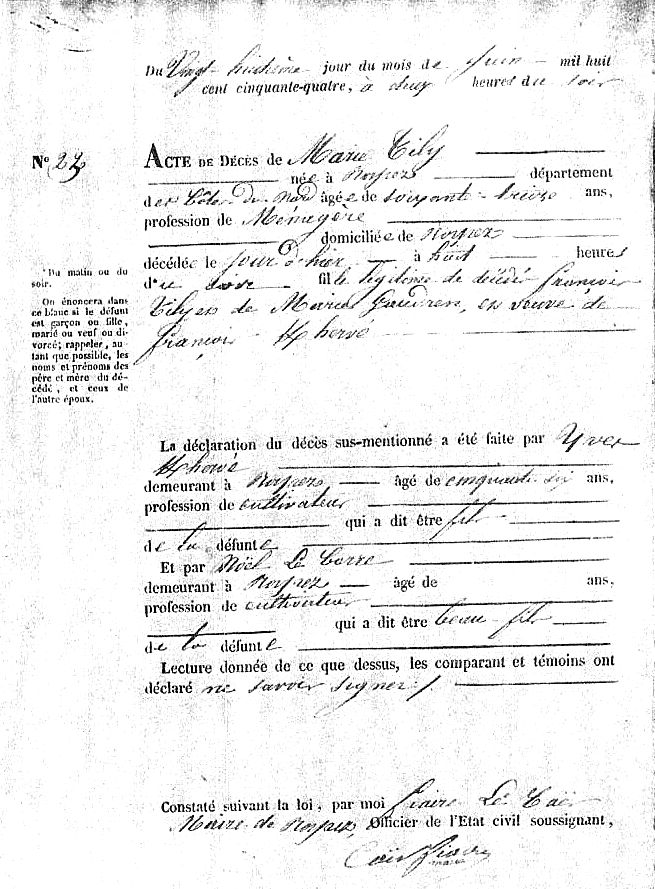 Du Vingt huitième jour du mois de Juin mil huit
cent cinquante-quatre, à deux heures du soir
N° 22
ACTE DE DÉCÈS de Marie Tily
née à département
des Côtes du Nord âgée de soixante-treize ans,
profession de Ménagère
domiciliée de
décédée le jour d'hier à huit heures
du soir fille légitime de décédé françois
Tily et de Marie, et veuve de
françois
*Du matin ou du
soir.
On énoncera dans
ce blanc si le défunt
est garçon ou fille,
marié ou veuf ou di-
vorcé; rappeler, au-
tant que possible, les
noms et prénoms des
père et mère du dé-
cédé, et ceux de
l'autre époux.
La déclaration du décès sus-mentionné a été faite par Yves
demeurant à âgé de cinquante six ans,
profession de cultivateur
qui a dit être fils
de la défunte
Et par Noël Le Corre
demeurant à âgé de ans,
profession de cultivateur
qui a dit être beau-fils
de la défunte
Lecture donnée de ce que dessus, les comparant et témoins ont
déclaré ne savoir signer ;.
Constaté suivant la loi, par moi Le
Maire de, Officier de l'Etat civil soussignant,
maire